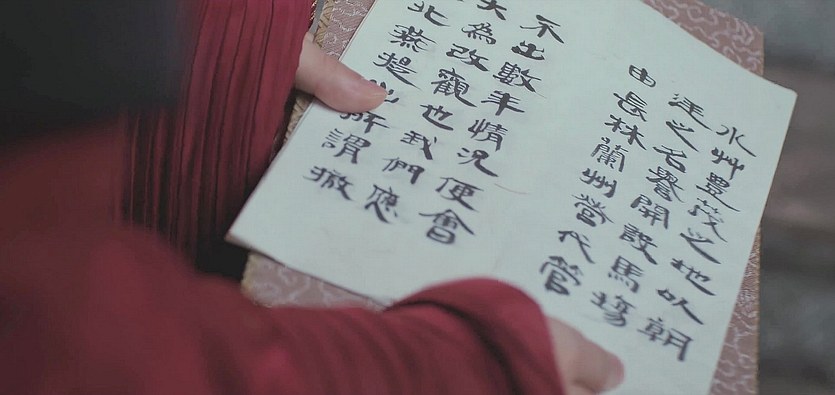 水艸豐茂之地以朝
廷之名譽開設馬場
由長林蘭州營代管
不出數年情況便會
大為改觀也我們應
北燕提所謂撤